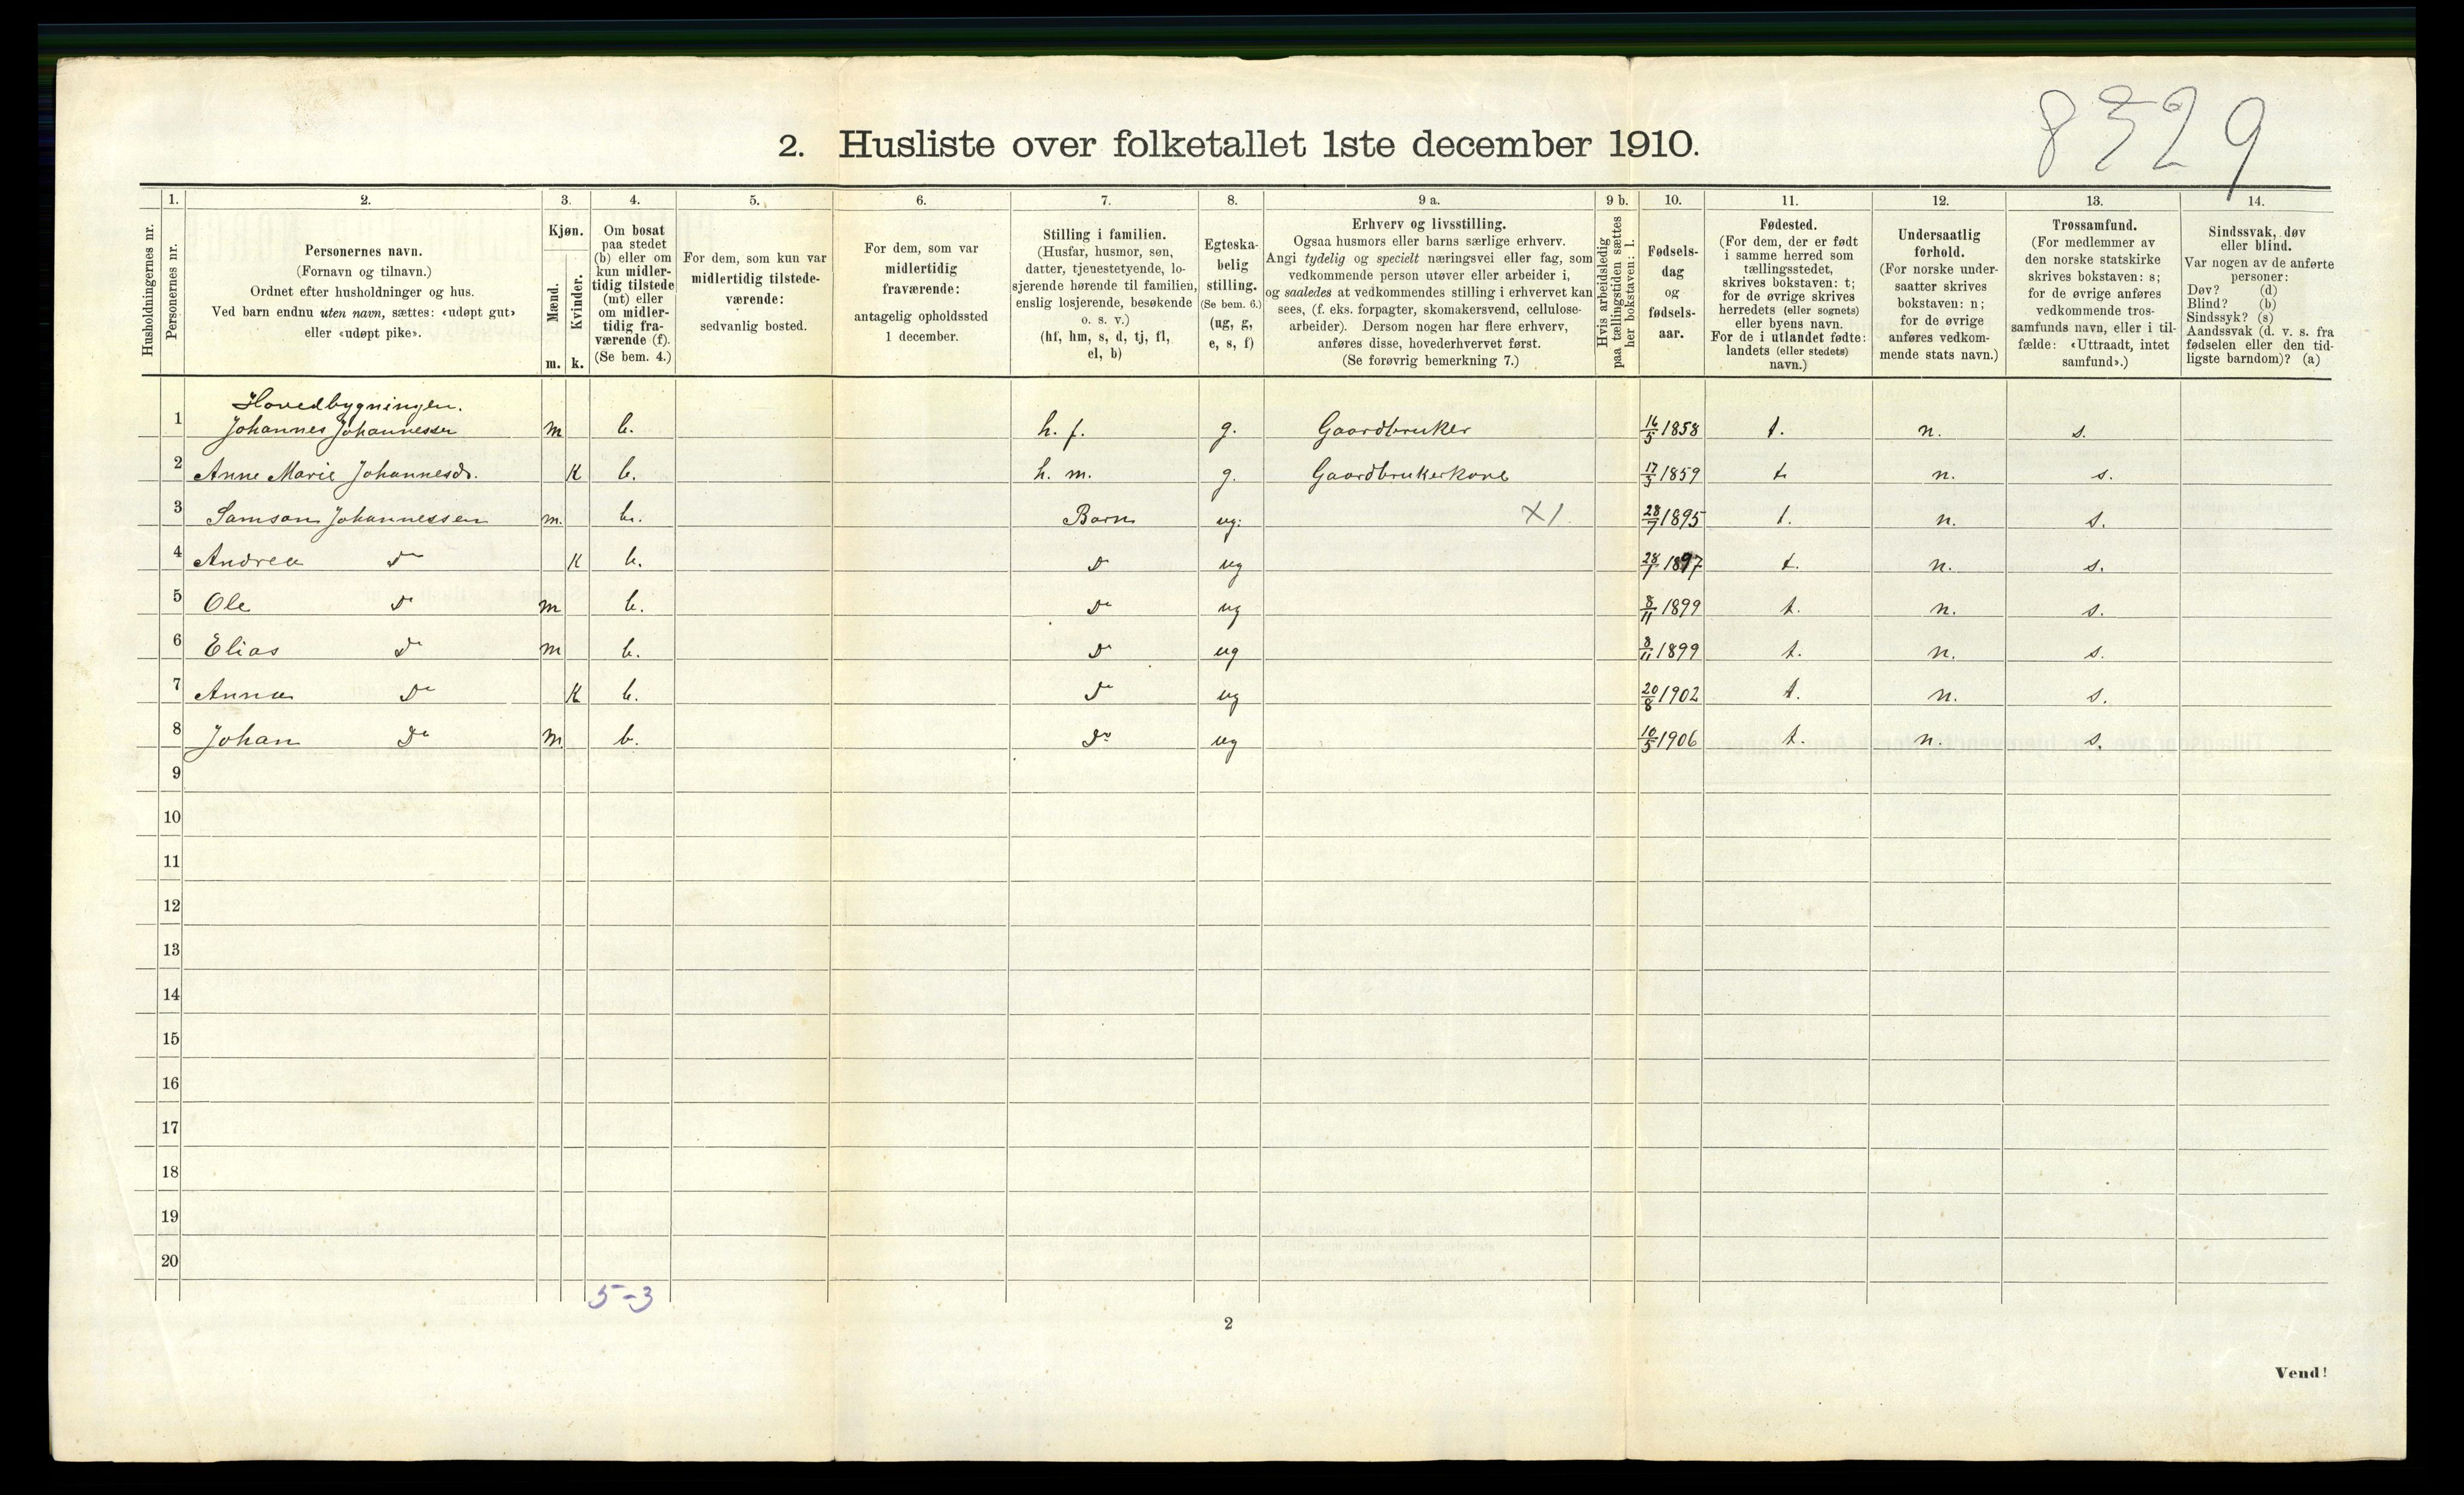 8529
2. Husliste over folketallet 1ste december 1910.
Husholdningernes nr.
1.
Personernes nr.
2.
Personernes navn.
(Fornavn og tilnavn.)
Ordnet efter husholdninger og hus.
Ved barn endnu uten navn, sættes: «udøpt gut»
eller «udøpt pike».
3.
Kjøn.
Mænd.
Kvinder.
m. k.
4.
Om bosat
paa stedet
(b) eller om
kun midler-
tidig tilstede
(mt) eller
om midler-
tidig fra-
værende (f).
(Se bem. 4.)
5.
For dem, som kun var
midlertidig tilstede-
værende:
sedvanlig bosted.
6.
For dem, som var
midlertidig
fraværende:
antagelig opholdssted
1 december.
7.
Stilling i familien.
(Husfar, husmor, søn,
datter, tjenestetyende, lo-
sjerende hørende til familien,
enslig losjerende, besøkende
o. s. v.)
(hf, hm, s, d, tj, fl,
el, b)
8.
Egteska-
belig
stilling.
(Se bem. 6.)
(ug, g,
e, s, f)
9 a.
Erhverv og livsstilling.
Ogsaa husmors eller barns særlige erhverv.
Angi tydelig og specielt næringsvei eller fag, som
vedkommende person utøver eller arbeider i,
og saaledes at vedkommendes stilling i erhvervet kan
sees, (f. eks. forpagter, skomakersvend, cellulose-
arbeider). Dersom nogen har flere erhverv,
anføres disse, hovederhvervet først.
(Se forøvrig bemerkning 7.)
9 b.
Hvis arbeidsledig
paa tællingstiden sættes
her bokstaven: l.
10.
Fødsels-
dag
og
fødsels-
aar.
11.
Fødested.
(For dem, der er født
i samme herred som
tællingsstedet,
skrives bokstaven: t;
for de øvrige skrives
herredets (eller sognets)
eller byens navn.
For de i utlandet fødte:
landets (eller stedets)
navn.)
12.
Undersaatlig
forhold.
(For norske under-
saatter skrives
bokstaven: n;
for de øvrige
anføres vedkom-
mende stats navn.)
13.
Trossamfund.
(For medlemmer av
den norske statskirke
skrives bokstaven: s;
for de øvrige anføres
vedkommende tros-
samfunds navn, eller i til-
fælde: «Uttraadt, intet
samfund».)
14.
Sindssvak, døv
eller blind.
Var nogen av de anførte
personer:
Døv? (d)
Blind? (b)
Sindssyk? (s)
Aandssvak (d. v. s. fra
fødselen eller den tid-
ligste barndom)? (a)
Hovedbygningen.
1 Johannes Johannessen m b. h. f. g. Gaardbruker 16/5 1858 t. n. s.
2 Anne Marie Johannesdr. K b. h. m. g. Gaardbrukerkone 17/3 1859 t n. s.
3 Samson Johannessen m. b. Barn ug. X1. 28/7 1895 t. n. s.
4 Andrea Do K b. Do ug 28/1 1897 t. n. s.
5 Ole Do m b. Do ug 8/11 1899 t. n. s.
6 Elias Do m b. Do ug 8/11 1899 t. n. s.
7 Anna Do K b. Do ug 20/8 1902 t. n. s.
8 Johan Do m b. Do ug 10/5 1906 t. n. s.
9
10
11
12
13
14
15
16
17
18
19
20
5-3
2
Vend!